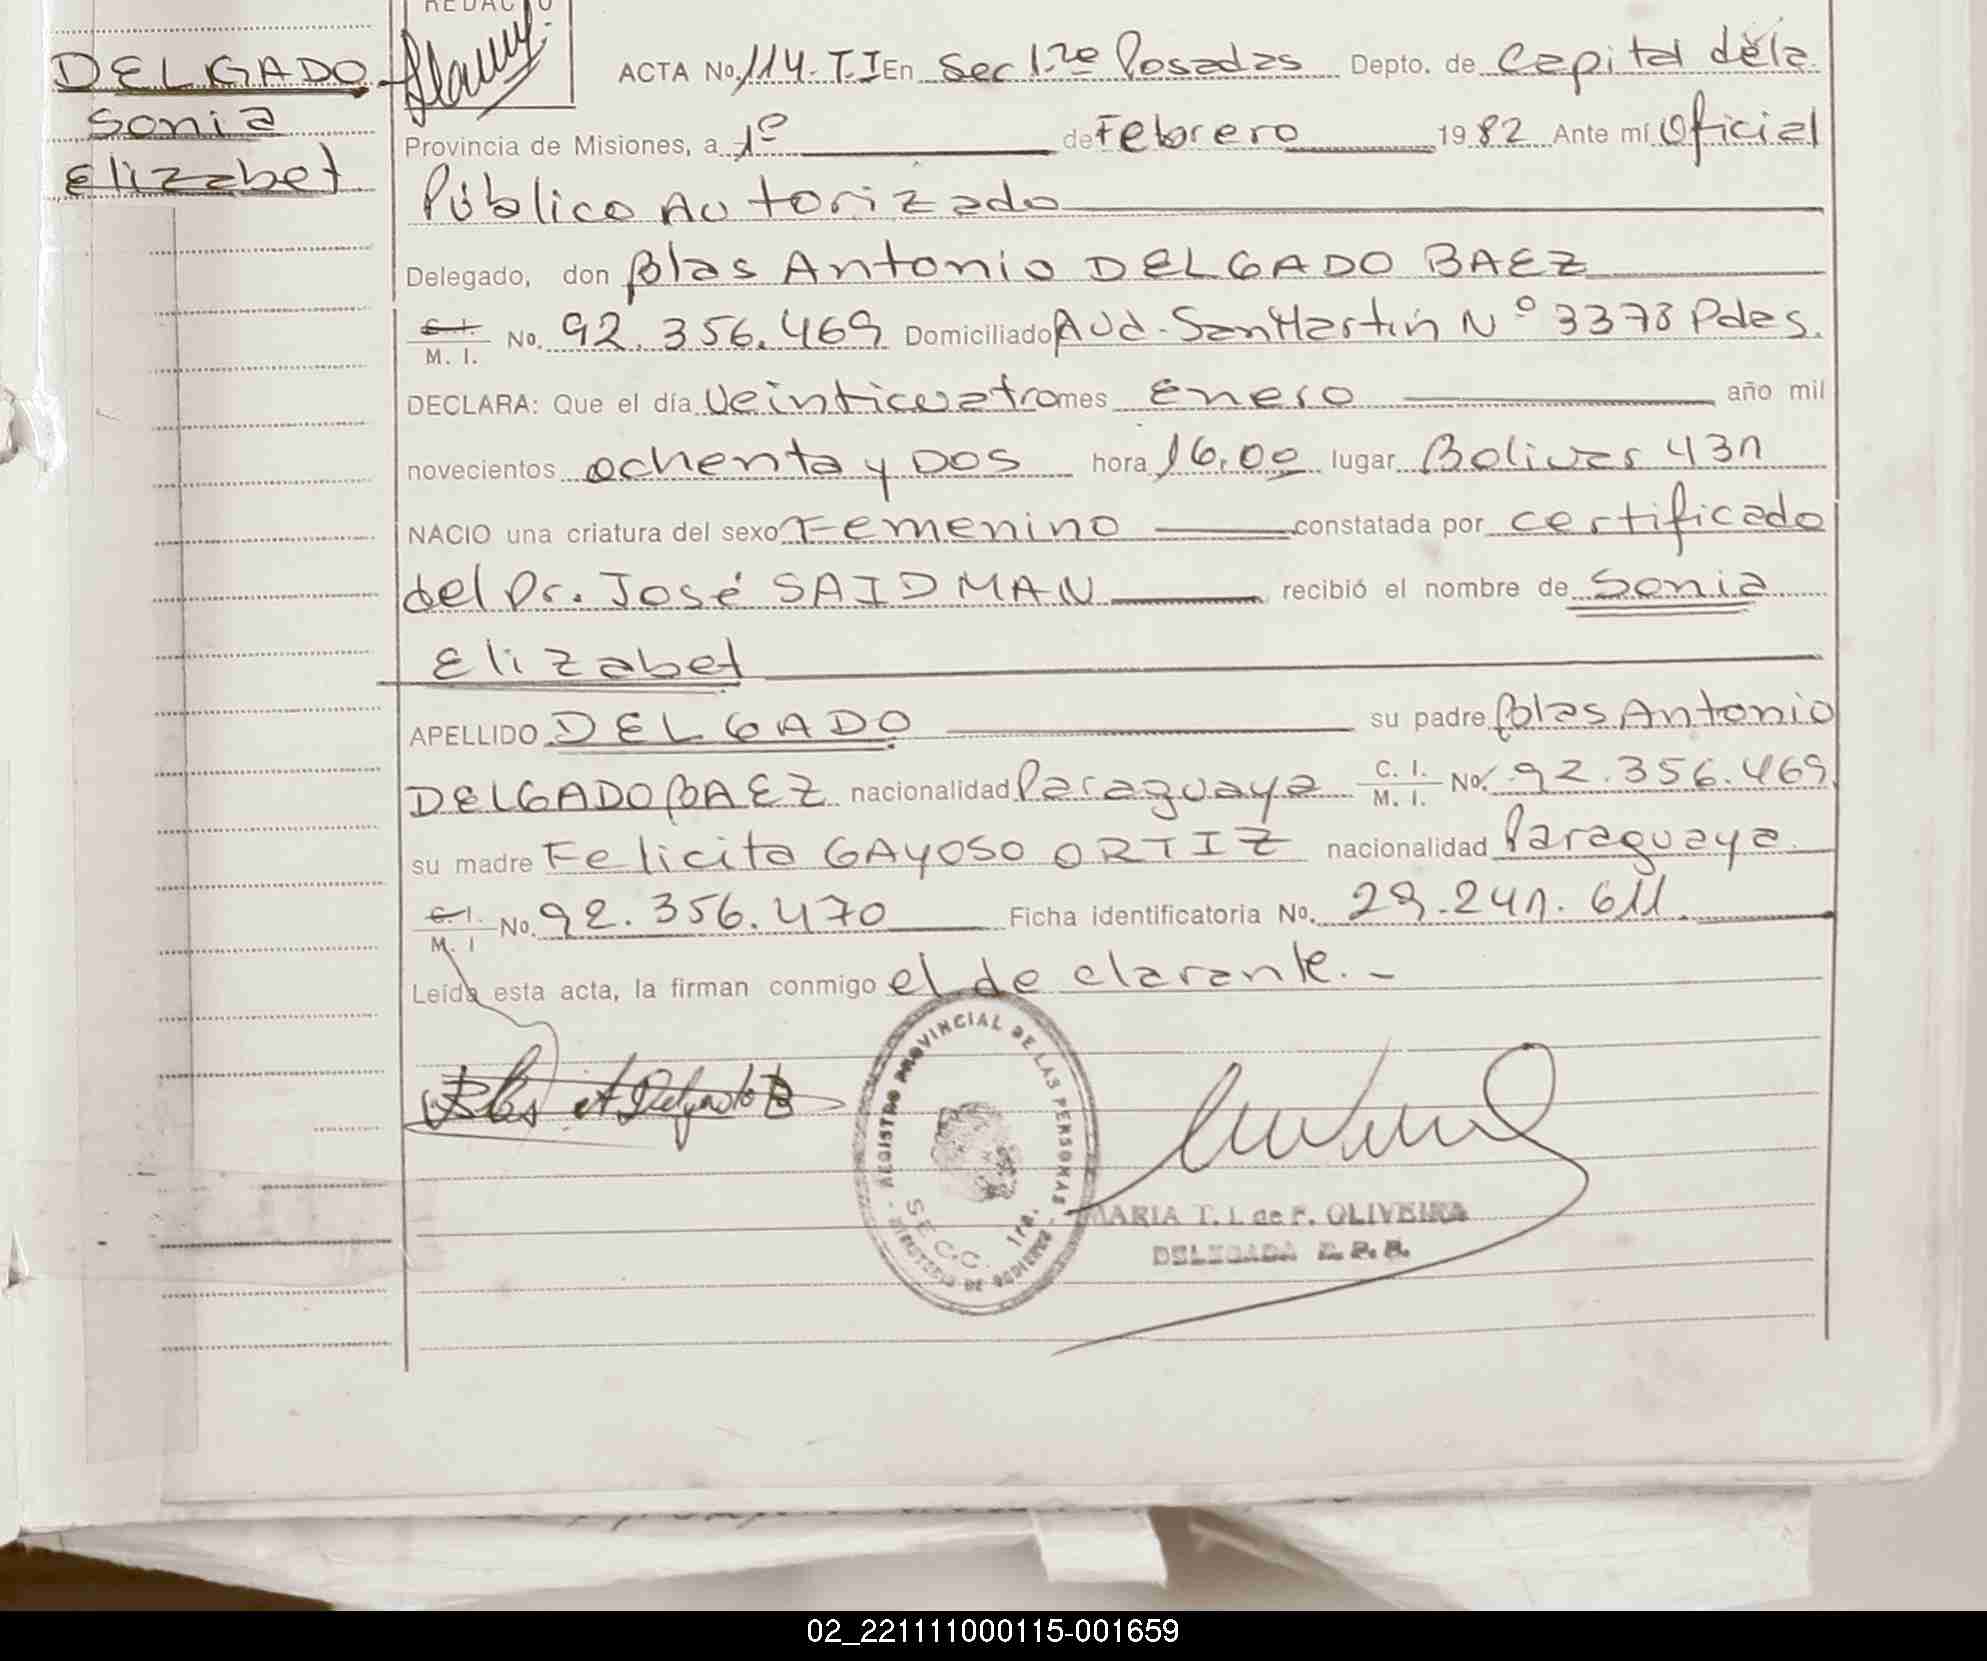 REDACTO
DELGADO
Sonia
Elizabet
ACTA No. 114-T.I En Sec 1ra Posadas Depto. de Capital de la
Provincia de Misiones, a 1º de Febrero 1982 Ante mí Oficial
Público Autorizado
Delegado, don Blas Antonio DELGADO BAEZ
C.I. M. I. No. 92.356.469 Domiciliado Avd. San Martín Nº 3378 Pdas.
DECLARA: Que el día Veinticuatro mes Enero año mil
novecientos ochenta y DOS hora 16,00 lugar Bolivar 431
NACIO una criatura del sexo Femenino constatada por certificado
del Dr. José SAIDMAN recibió el nombre de Sonia
Elizabet
APELLIDO DELGADO su padre Blas Antonio
DELGADO BAEZ nacionalidad Paraguaya C. I. M. I. No. 92.356.469
su madre Felicita GAYOSO ORTIZ nacionalidad Paraguaya
C.I. M. I No. 92.356.470 Ficha identificatoria No. 29.241.611
Leída esta acta, la firman conmigo el declarante.-
Blas A Delgado B
REGISTRO PROVINCIAL DE LAS PERSONAS
SECC. 1ra.
MINISTERIO DE GOBIERNO
MARIA T. I. de F. OLIVEIRA
DELEGADA
02_221111000115-001659